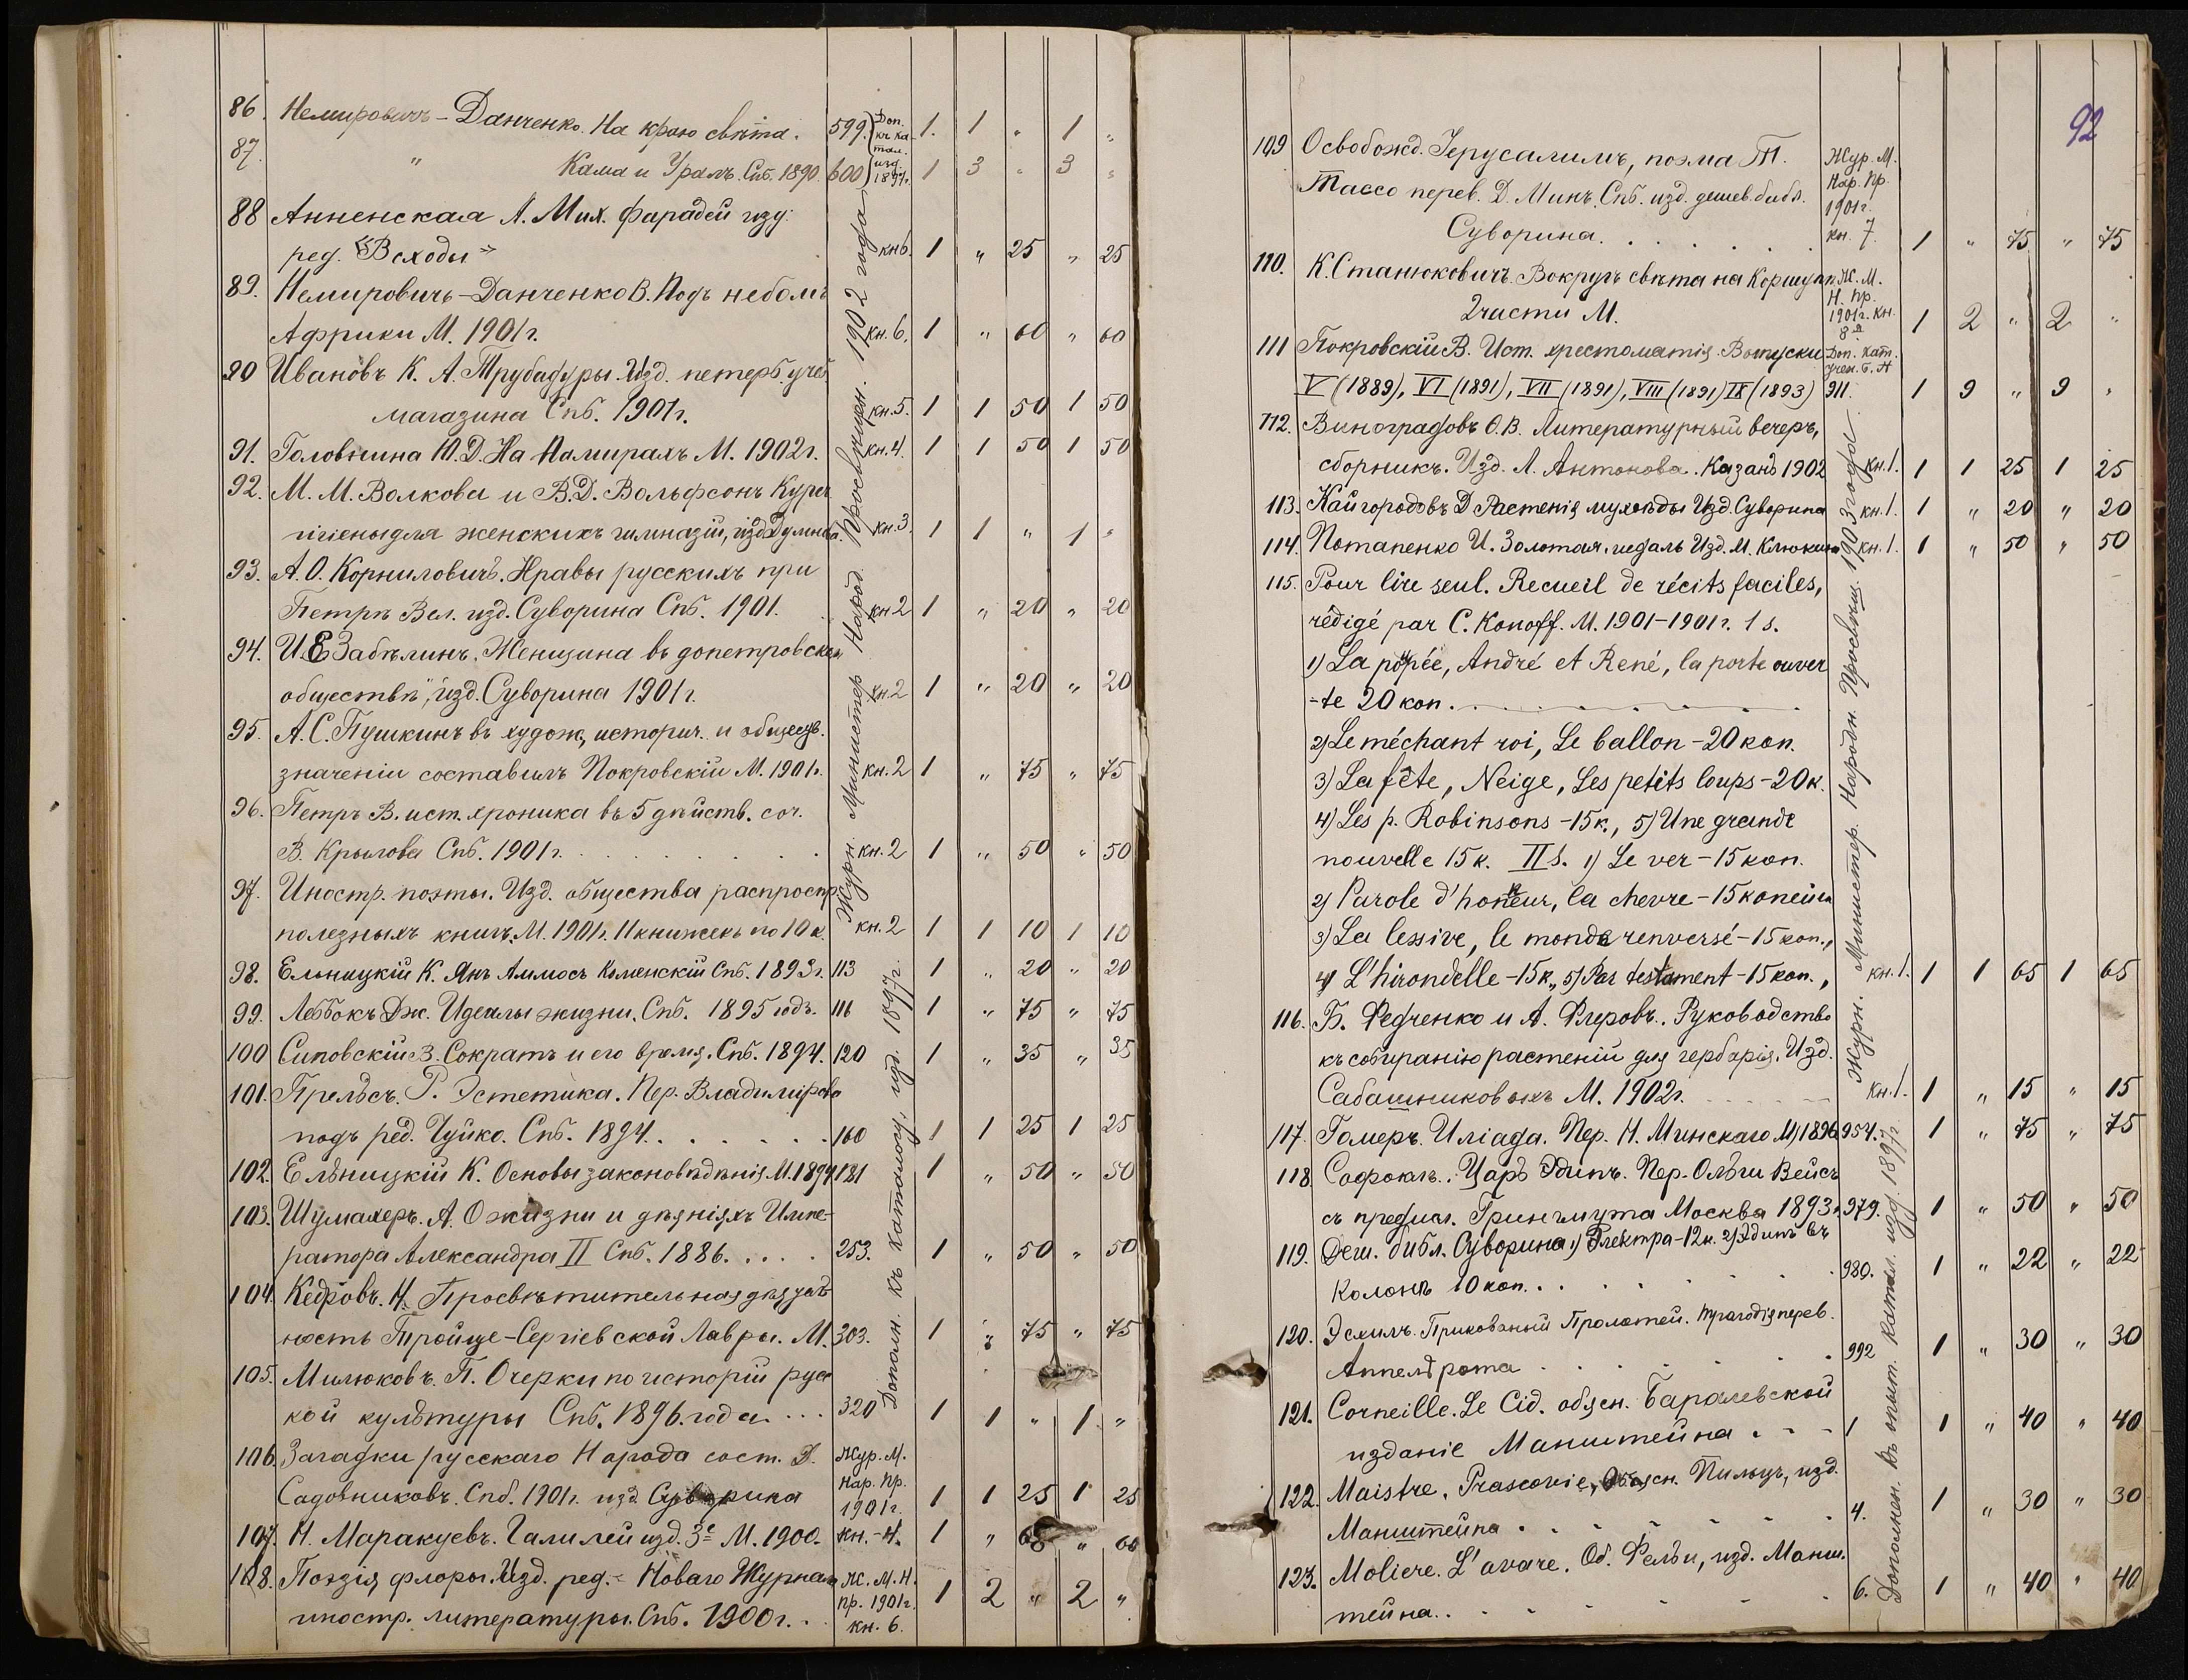 86. Немировичъ-Данченко. На краю свѣта. 599. Доп. къ ка- 1. 1 „ 1 „
87. „ Кама и Уралъ. Спб. 1890. 600 тал. изд. 1897г. 1 3 „ 3 „
88 Анненская А. Мих. Фарадей изд:
ред. «Всходы» кн 6. 1 „ 25 „ 25
89. Немировичъ-Данченко В. Подъ небомъ
Африки М. 1901г. кн. 6. 1 „ 60 „ 60
90 Ивановъ К. А. Трубадуры. Изд. петерб. учеб.
магазина Спб. 1901г. кн. 5. 1 1 50 1 50
91. Головнина Ю. Д. На Памирахъ М. 1902г. кн. 4. 1 1 50 1 50
92. М. М. Волкова и В. Д. Вольфсонъ Курсъ
гигіены для женскихъ гимназій, изд. Думнова. кн. 3. 1 1 „ 1 „
93. А. О. Корниловичъ. Нравы русскихъ при
Петрѣ Вел. изд. Суворина Спб. 1901. кн 2 1 „ 20 „ 20
94. И. Е Забѣлинъ. Женщина въ допетровском
обществѣ", изд. Суворина 1901г. кн. 2 1 „ 20 „ 20
95. А. С. Пушкинъ въ худож, историч. и обществ.
значеніи составилъ Покровскій М. 1901г. кн. 2 1 „ 75 „ 75
96. Петръ В. ист. хроника въ 5 дѣйств. соч.
В. Крылова Спб. 1901г. кн. 2 1 „ 50 „ 50
97. Иностр. поэты. Изд. общества распростр.
полезныхъ книгъ. М. 1901г. 11 книжекъ по 10 к. кн. 2 1 1 10 1 10
Журн. Министер Народ. Просвѣщен. 1902 года
98. Ельницкій К. Янъ Аммосъ Коменскій Спб. 1893г. 113 1 „ 20 „ 20
99. Леббокъ Дж. Идеалы жизни. Спб. 1895 годъ. 116 1 „ 75 „ 75
100 Сиповскій В. Сократъ и его время. Спб. 1894. 120 1 „ 35 „ 35
101. Прельсъ. Р. Эстетика. Пер. Владимірова
подъ ред. Чуйко. Спб. 1894. 160 1 1 25 1 25
102. Ельницкій К. Основы законовѣдѣнія М. 1894 181 1 „ 50 „ 50
103. Шумахеръ. А. О жизни и дѣяніяхъ Импе-
ратора Александра II Спб. 1886. 253. 1 „ 50 „ 50
104. Кедровъ. Н. Просвѣтительная дѣятель
ность Троице-Сергіевской Лавры. М. 303. 1 „ 75 „ 75
105. Милюковъ. П. Очерки по исторіи рус
кой культуры Спб. 1896. года. 320 1 1 „ 1 „
Дополн. къ каталогу, изд. 1897г.
106. Загадки русскаго Народа сост. Д. Жур. М.
Садовниковъ. Спб. 1901г. изд Суворина Нар. Пр. 1901г. 1 1 25 1 25
107. Н. Маракуевъ. Галилей изд. 3е М. 1900. кн.-4. 1 „ 60 „ 60
108. Поэзія флоры. Изд. ред.- Новаго Журнала Ж. М. Н.
иностр. литературы. Спб. 1900г. Пр. 1901г. кн. 6. 1 2 „ 2 „
92
109 Освобожд. Іерусалимъ, поэма Т. Жур. М.
Тассо перев. Д. Минъ. Спб. изд. дешев. библ. Нар. Пр. 1901г.
Суворина. кн. 7. 1 „ 75 „ 75
110. К. Станюковичъ. Вокругъ свѣта на Коршунѣ Ж. М.
2 части М. Н. Пр. 1901г. кн. 8я 1 2 „ 2 „
111 Покровскій В. Ист. хрестоматія. Выпуски Доп. кат. учен. б. №
V (1889), VI (1891), VII (1891), VIII (1891) IX (1893) 911. 1 9 „ 9 „
112. Виноградовъ О. В. Литературный вечеръ,
сборникъ. Изд. А. Антонова. Казань 1902 кн. 1. 1 1 25 1 25
113. Кайгородовъ Д Растенія мухоѣды Изд. Суворина кн. 1. 1 „ 20 „ 20
114. Потапенко И. Золотая медаль Изд. М. Клюкина кн. 1. 1 „ 50 „ 50
115. Pour lire seul. Recueil de récits faciles,
rédigé par C. Konoff. M. 1901-1901г. 1 s.
1) La poupée, André et René, la porte ouver
-te 20 коп.
2) Le méchant roi, Le ballon - 20 коп.
3) La fête, Neige, Les petits loups - 20 к.
4) Les p. Robinsons - 15 к., 5) Une grande
nouvelle 15 к. II s. 1) Le ver - 15 коп.
2) Parole d'honneur, la chevre - 15 копеикъ
3) La lessive, le monde renversé - 15 коп.,
4) L'hirondelle - 15 к., 5) Pas testament - 15 коп., кн. 1. 1 1 65 1 65
116. Б. Федченко и А. Флеровъ. Руководство
къ собиранію растеній для гербарія. Изд.
Сабашниковыхъ М. 1902г. кн. 1. 1 „ 15 „ 15
Журн. Министер. Народн. Просвѣщ. 1903 года
117. Гомеръ. Иліада. Пер. Н. Минскаго М) 1896 954. 1 „ 75 „ 75
118. Софоклъ. Царь Эдипъ. Пер. Ольги Вейсъ
съ предисл. Грингмута Москва 1893г. 979. 1 „ 50 „ 50
119. Деш. библ. Суворина 1) Электра - 12 к. 2) Эдипъ въ
Колонѣ 10 коп. 980. 1 „ 22 „ 22
120. Эсхилъ. Прикованный Прометей. трагедія перев.
Аппельрота 992 1 „ 30 „ 30
121. Corneille. Le Cid. объясн. Баралевской
изданіе Манштейна 1 1 „ 40 „ 40
122. Maistre. Prascovie, Объясн. Пильцъ, изд.
Манштейна 4. 1 „ 30 „ 30
123. Moliere. L'avare. Об. Фельи, изд. Манш.
тейна. 6. 1 „ 40 „ 40
Дополнен. къ опыт. катал. изд. 1897г.